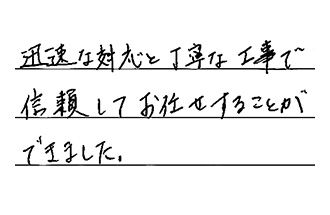 迅速な対応と丁寧な工事で
信頼してお任せすることが
できました。